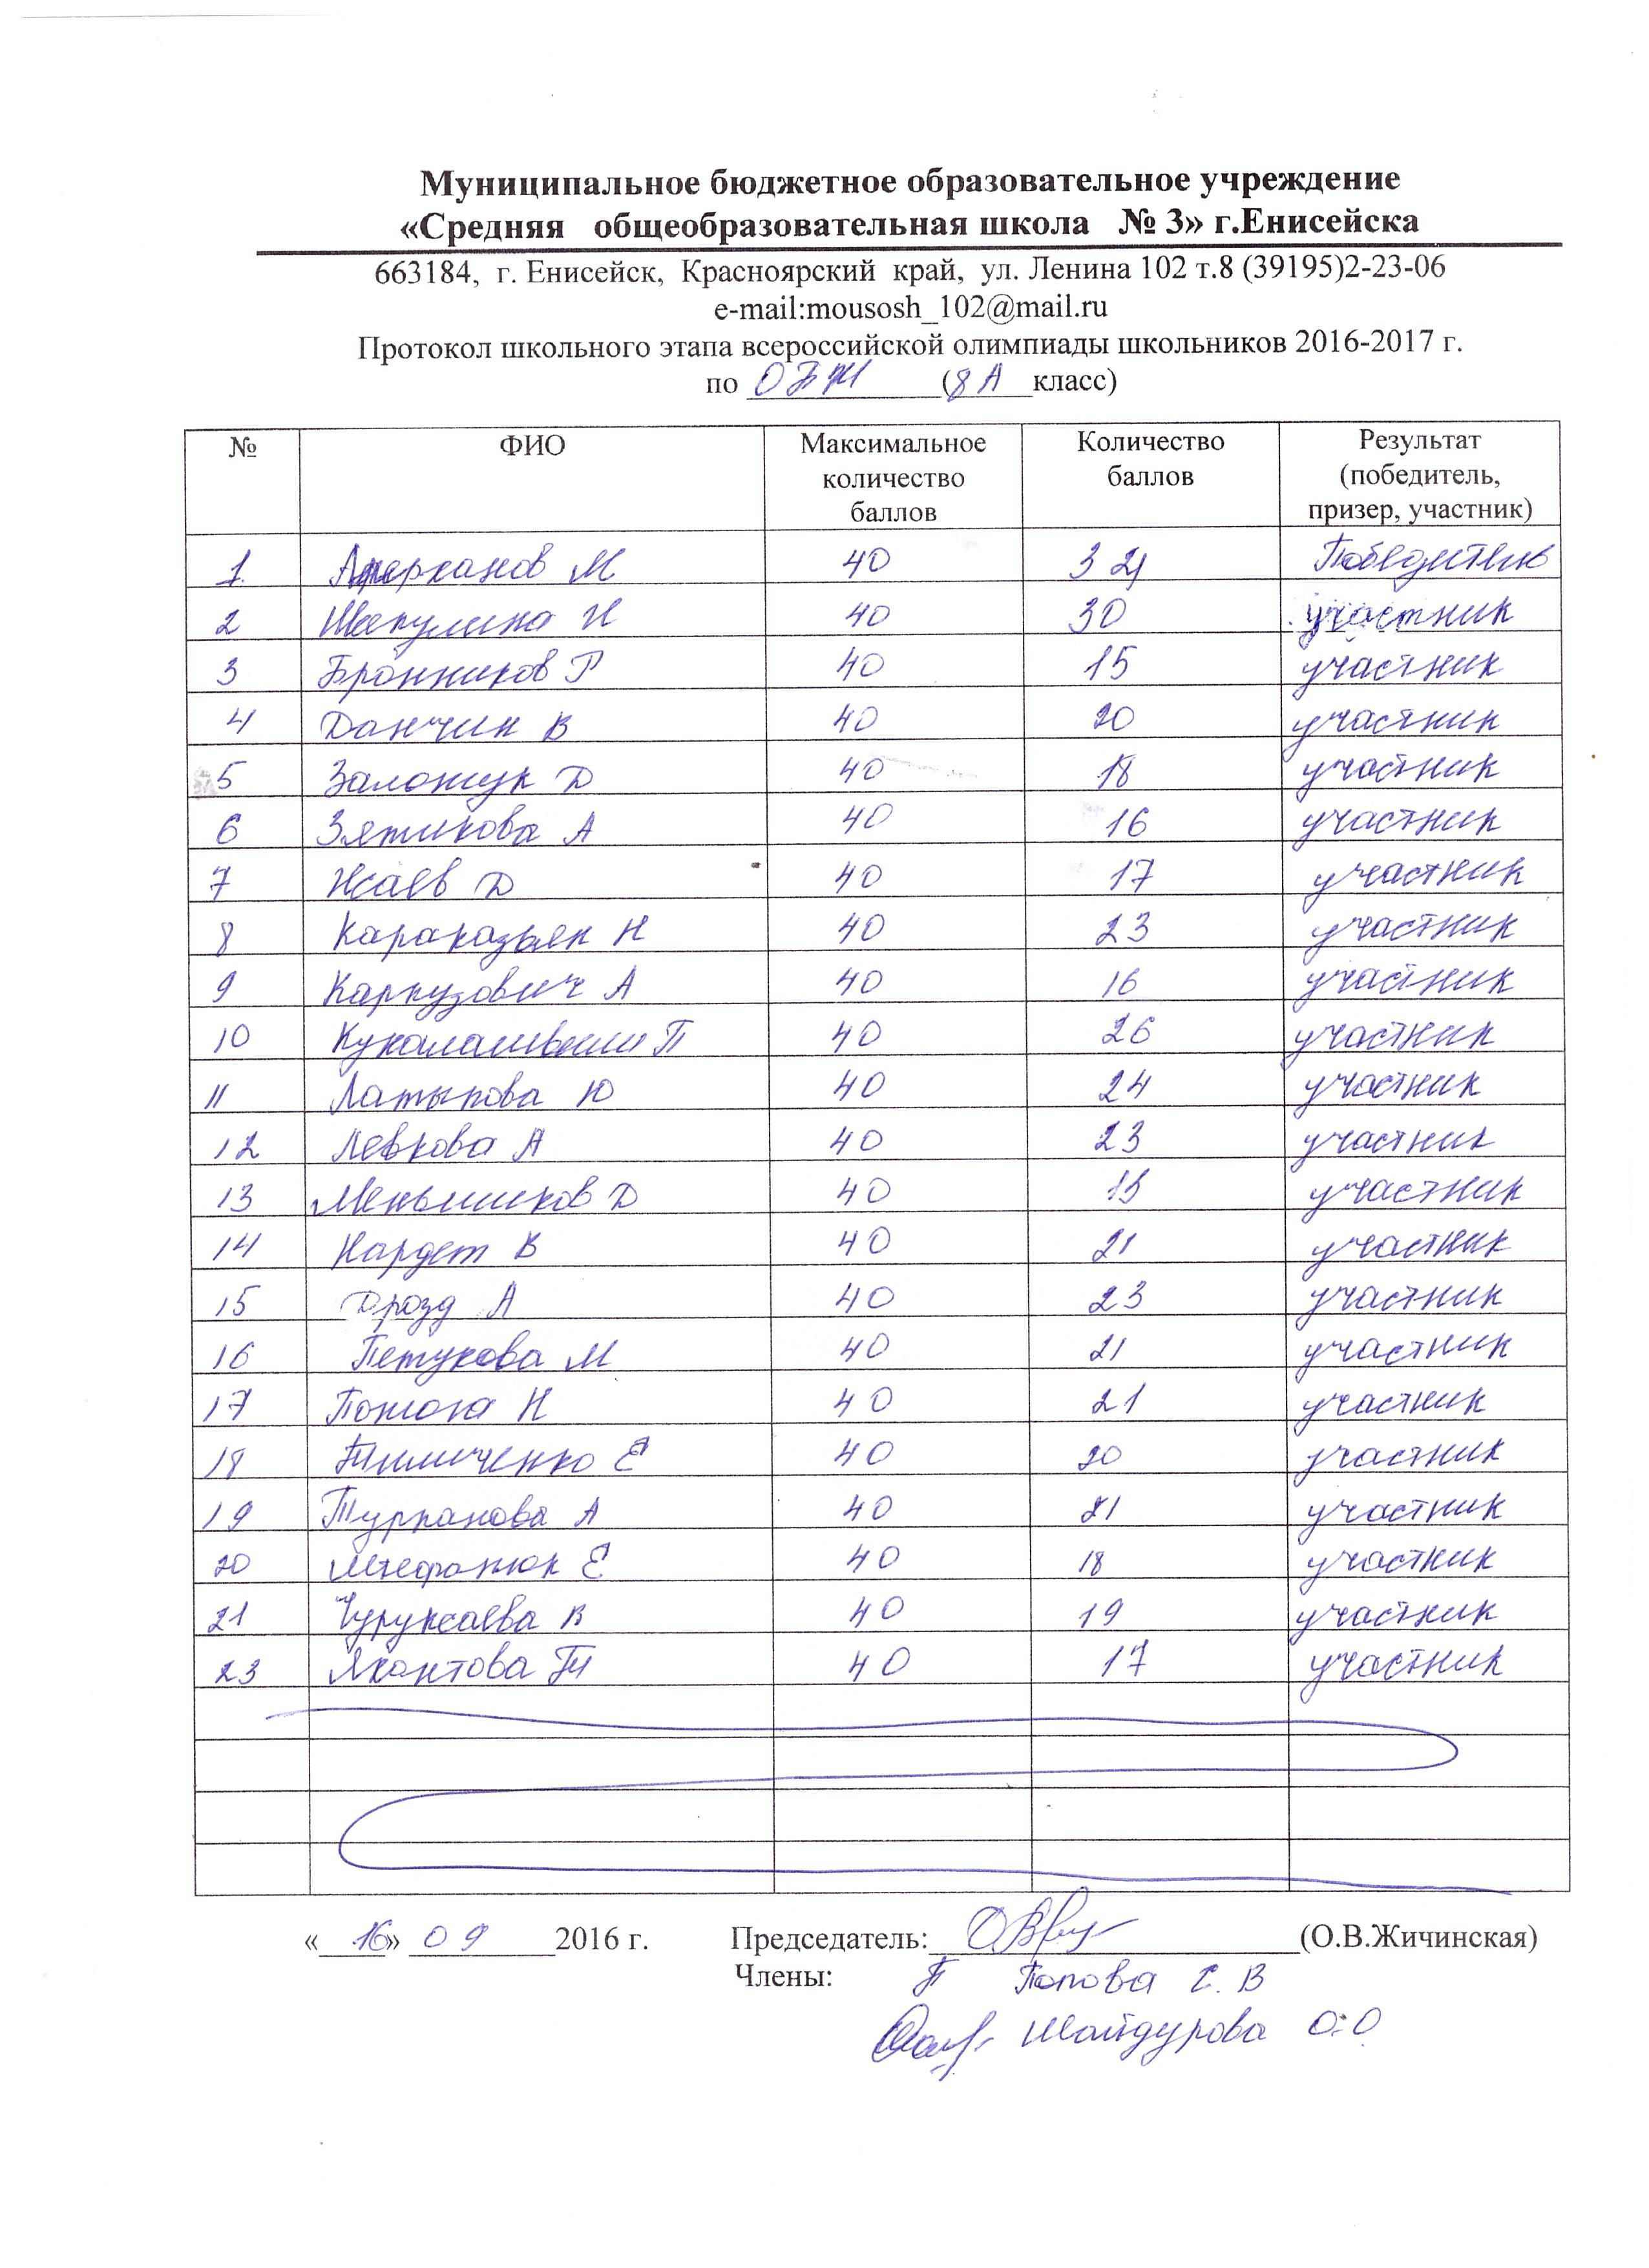 Муниципальное бюджетное образовательное учреждение
«Средняя общеобразовательная школа № 3» г.Енисейска
663184, г. Енисейск, Красноярский край, ул. Ленина 102 т.8 (39195)2-23-06
e-mail:mousosh_102@mail.ru
Протокол школьного этапа всероссийской олимпиады школьников 2016-2017 г.
по ОБЖ (8 А класс)
№ ФИО Максимальное количество баллов Количество баллов Результат (победитель, призер, участник)
1 М 40 Победитель
2 40 30 участник
3 Бронников Р 40 15 участник
4 Данчин В 40 20 участник
5 Д 40 18 участник
6 Зятикова А 40 16 участник
7 Исаев Д 40 17 участник
8 Н 40 23 участник
9 Карпузович А 40 16 участник
10 П 40 26 участник
11 Латыпова Ю 40 24 участник
12 Левкова А 40 23 участник
13 Меньшиков Д 40 участник
14 В 40 21 участник
15 Дрозд А 40 23 участник
16 Петухова М 40 21 участник
17 Н 40 21 участник
18 Тимиченко Е 40 20 участник
19 Турпанова А 40 21 участник
20 Е 40 18 участник
21 В 40 19 участник
23 Яхонтова Т 40 17 участник
«16» 09 2016 г. Председатель: (О.В.Жичинская)
Члены: Попова С. В
Шайдурова О.О